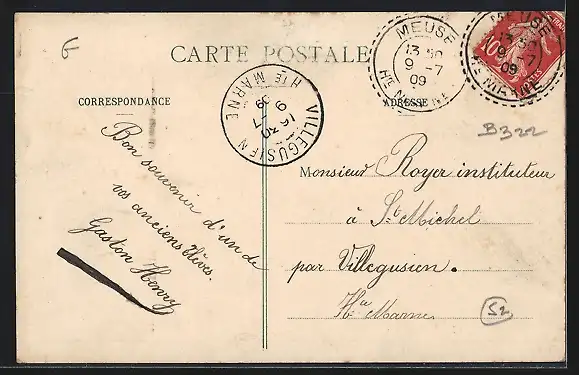 6
CARTE POSTALE
MEUSE
13 50
9 -7
09
Hte MARNE
MEUSE
13 50
9 -7
09
Hte MARNE
10
POSTES
CORRESPONDANCE
ADRESSE
VILLEGUSIEN
Hte MARNE
16 30
9 -7
09
B322
Bon souvenir d'un de
vos anciens élèves.
Gaston Henry
Monsieur Royer instituteur
à St Michel
par Villegusien.
Hte Marne
52